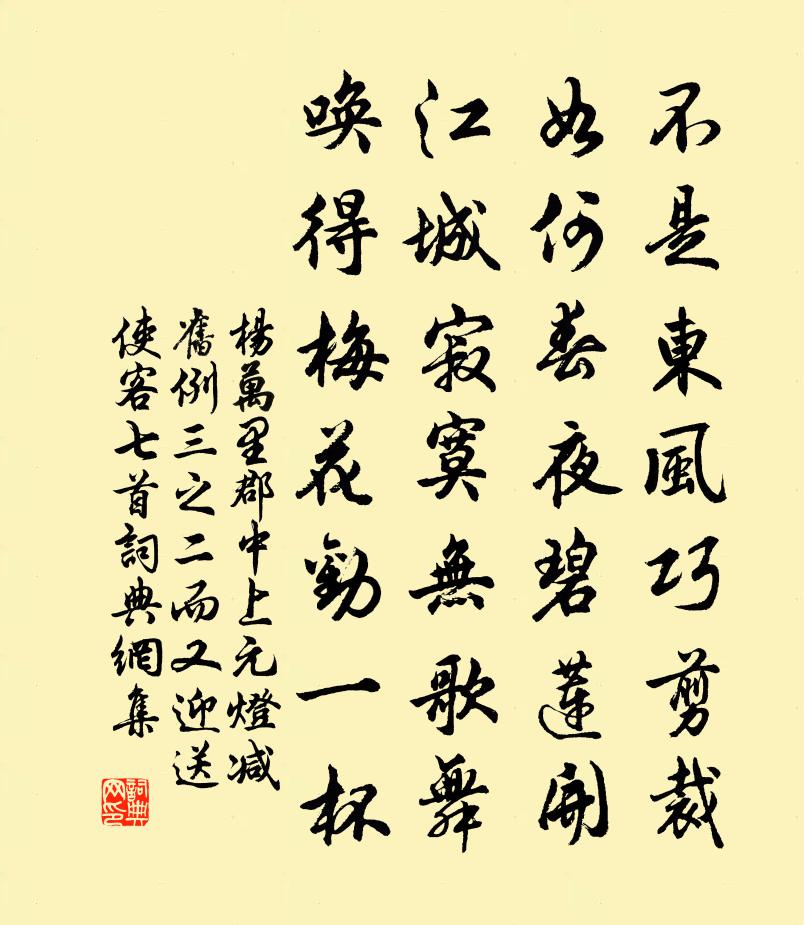 不是東風巧剪裁
如何春夜碧蓮開
江城寂寞無歌舞
喚得梅花勸一杯
楊萬里郡中上元燈減
舊例三之二而又迎送
使客七首詞典網集
詞典
网印